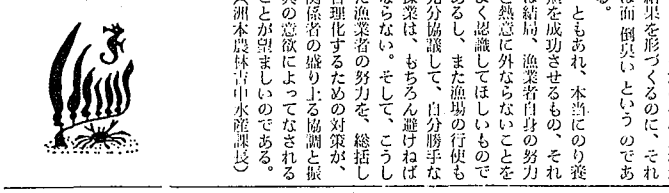 結果を形づくるのに、それ
は面倒臭いというのであ
る。
ともあれ、本当にのり養
殖を成功させるもの、それ
は結局、漁業者自身の努力
と熱意に外ならないことを
よく認識してほしいもので
あるし、また漁場の行使も
充分協議して、自分勝手な
操業は、もちろん避けねば
ならない。そして、こうし
た漁業者の努力を、総括し
合理化するための対策が、
関係者の盛り上る協調と振
興の意欲によってなされる
ことが望ましいのである。
（洲本農林古中水産課長）